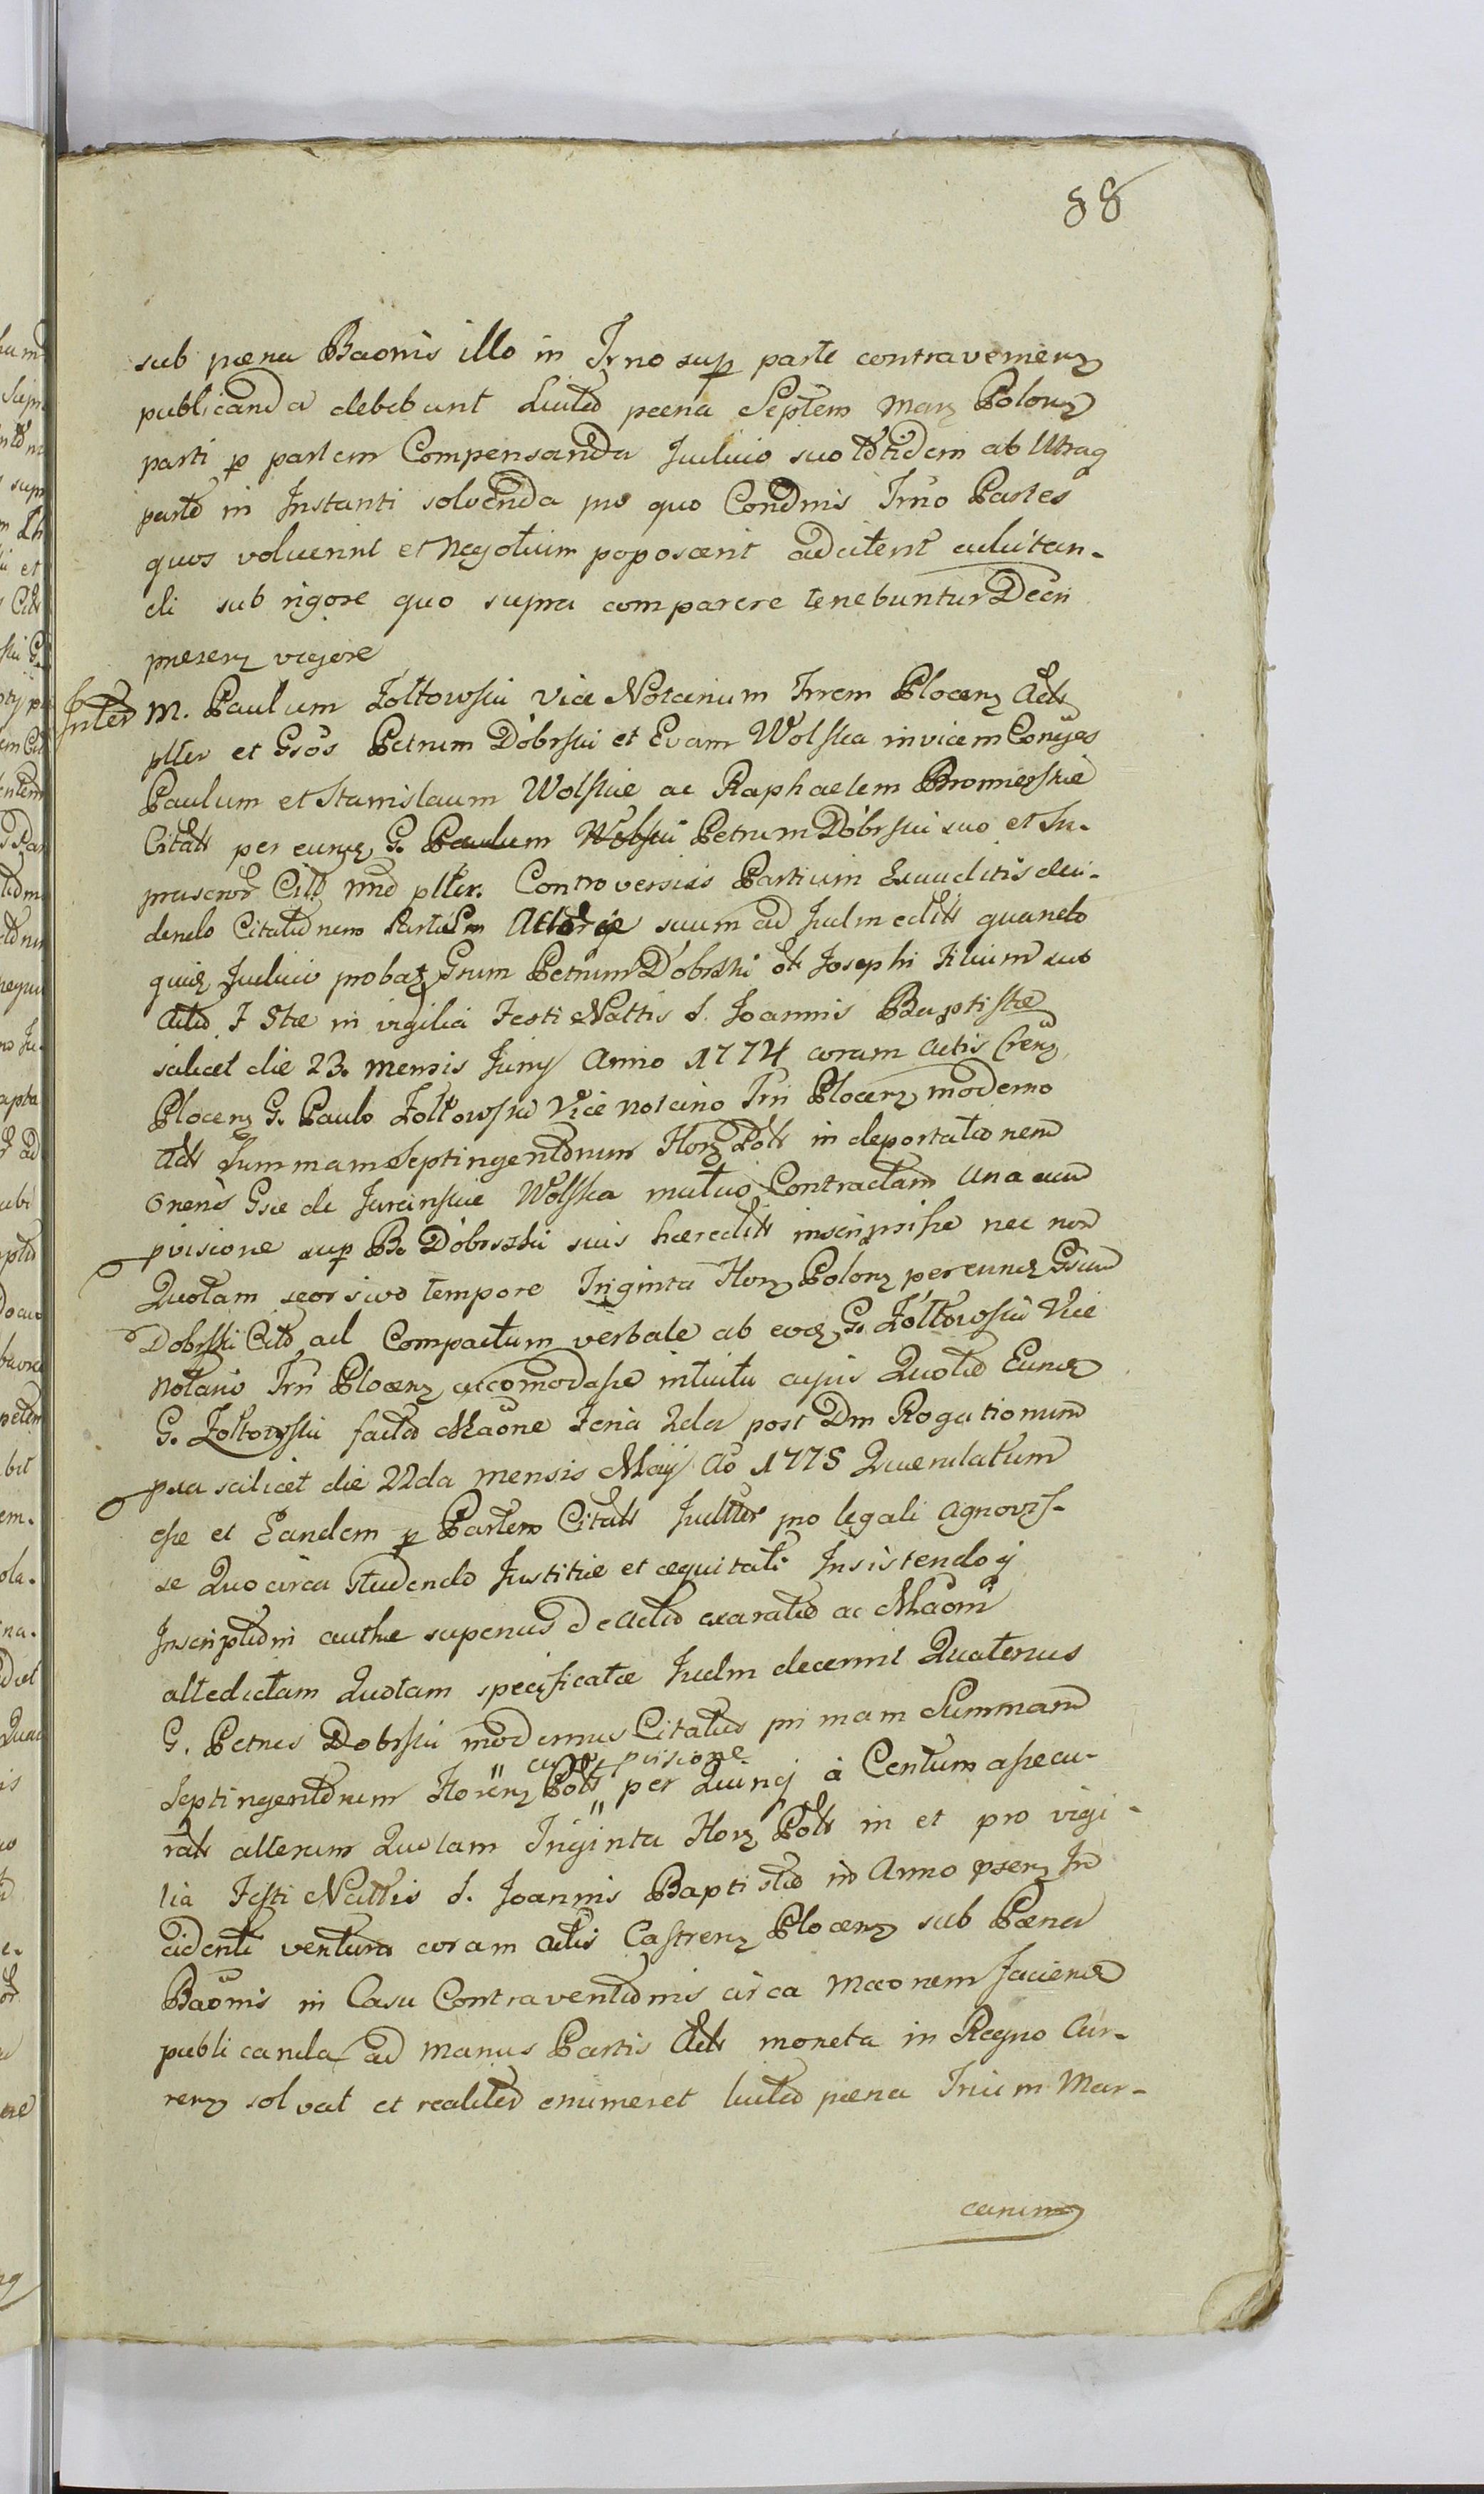 88
sub pœna Baonis illo in Trno sup parte contravenienz
publicanda debebunt Luitio pœna Septem Marz Polonz
parti p partem Compensanda Judicio suo totidem ab Utraq
parte in Instanti solvenda pro quo Condnis Trno Partes
quos voluerint et negotium poposcerit
di sub rigore quo supra comparere tenebuntur Decri
præsenz vigore
Inter M. Paulum Żołtowski Vice Notarium Trrem Plocenz Actt
ptter et Gsos Petrum Dobrski et Evam Wolska invicem Conjges
Paulum et Stanislaum Wolskie ac Raphaelem Bromierskie
Citatt per eunqz G. Paulum Wolski Petrum Dobrski suo et In-
prascrord Citt nne ptter. Controversiis Partium Exauditis dui-
dendo Citationem Partem suum ad Judm editt quando
quiz Judicio probaz Gsum Petrum Dobrski ott Josephi Filium sub
Actio F Stæ in vigilia Festi Nattis S. Joannis Baptistæ
scilicet die 23. mensis Juny Anno 1774 coram Actis Crenz
Plocenz G. Paulo Żołtowski Vice notario Trri Plocenz moderno
Actt Summam Septingentorum Florz Poltt in deportationem
onens Gsæ de Jurcinskie Wolska mutuo Contractam Una cum
pvisione sup B. Dobrski suis hæreditt inscripsisse nec non
Quotam seorsivo tempore Triginta Florz Polonz per eundz Gsum
Dobrski Citt ad Compactum verbale ab eodz G. Żółtowski Vice
Notario Trri Plocenz accomodasse intuitu cujus Quotæ Eundz
G. Żołtowski facta Maone Feria 2da post Dm Rogationum
pxa scilicet die 22da mensis Maij Ao 1775 Querulatum
esse et Eandem p Partem Citatt Juttter pro legali agnovis-
se Quocirca Studendo Justitiæ et æquitati Insistendo q
Inscriptioni authæ superius de Actio exaratæ ac Maoni
altedictam Quotam specificatæ Judm decernit Quatenus
G. Petrus Dobrski modernus Citatus primam Summam
cum pvisione
Septingentorum Florenz Poltt " per Quinq à Centum assecu-
ratt alteram Quotam Triginta Florz Poltt in et pro vigi-
lia Festi Nattis S. Joannis Baptistæ in Anno psenz In
cidenti ventura coram Actis Castrenz Plocenz sub Pœna
Baonis in Casu Contraventionis circa Maonem faciend
publicanda ad manus Partis Actt moneta in Regno Cur-
renz solvat et realiter enumeret luitio pœna Trium Mar-
carum